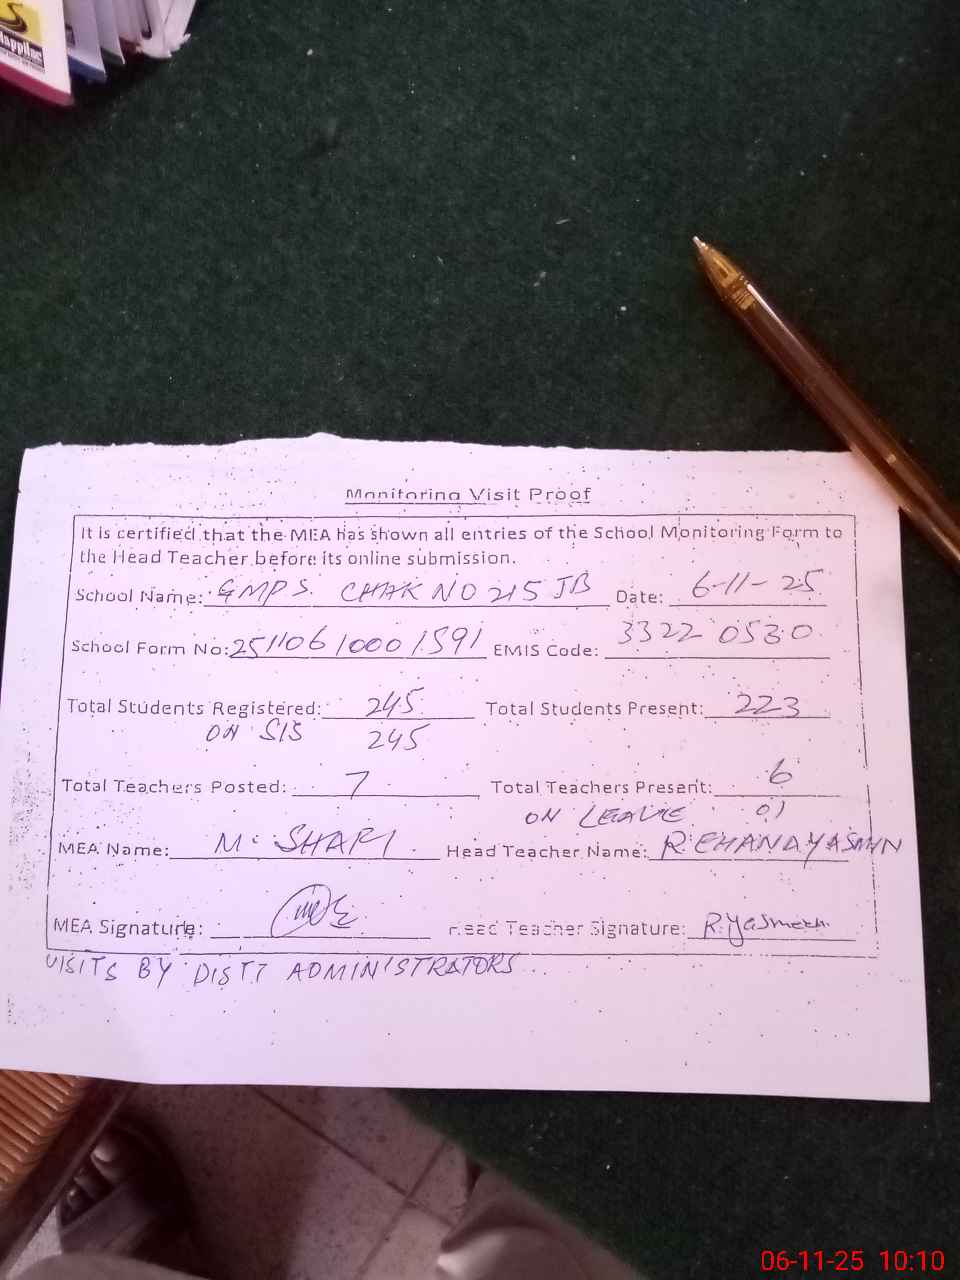 Monitoring Visit Proof
It is certified that the MEA has shown all entries of the School Monitoring Form to
the Head Teacher before its online submission.
School Name: GMPS. CHAK NO 215 JB Date: 6-11-25
School Form No: 25110610001591 EMIS Code: 33220530
Total Students Registered: 245 Total Students Present: 223
ON SIS 245
Total Teachers Posted: 7 Total Teachers Present: 6
ON LEAVE 01
MEA Name: M. SHAFI Head Teacher Name: REHANA YASMIN
MEA Signature: Head Teacher Signature: R.Yasmeen
VISITS BY DISTT ADMINISTRATORS
06-11-25 10:10